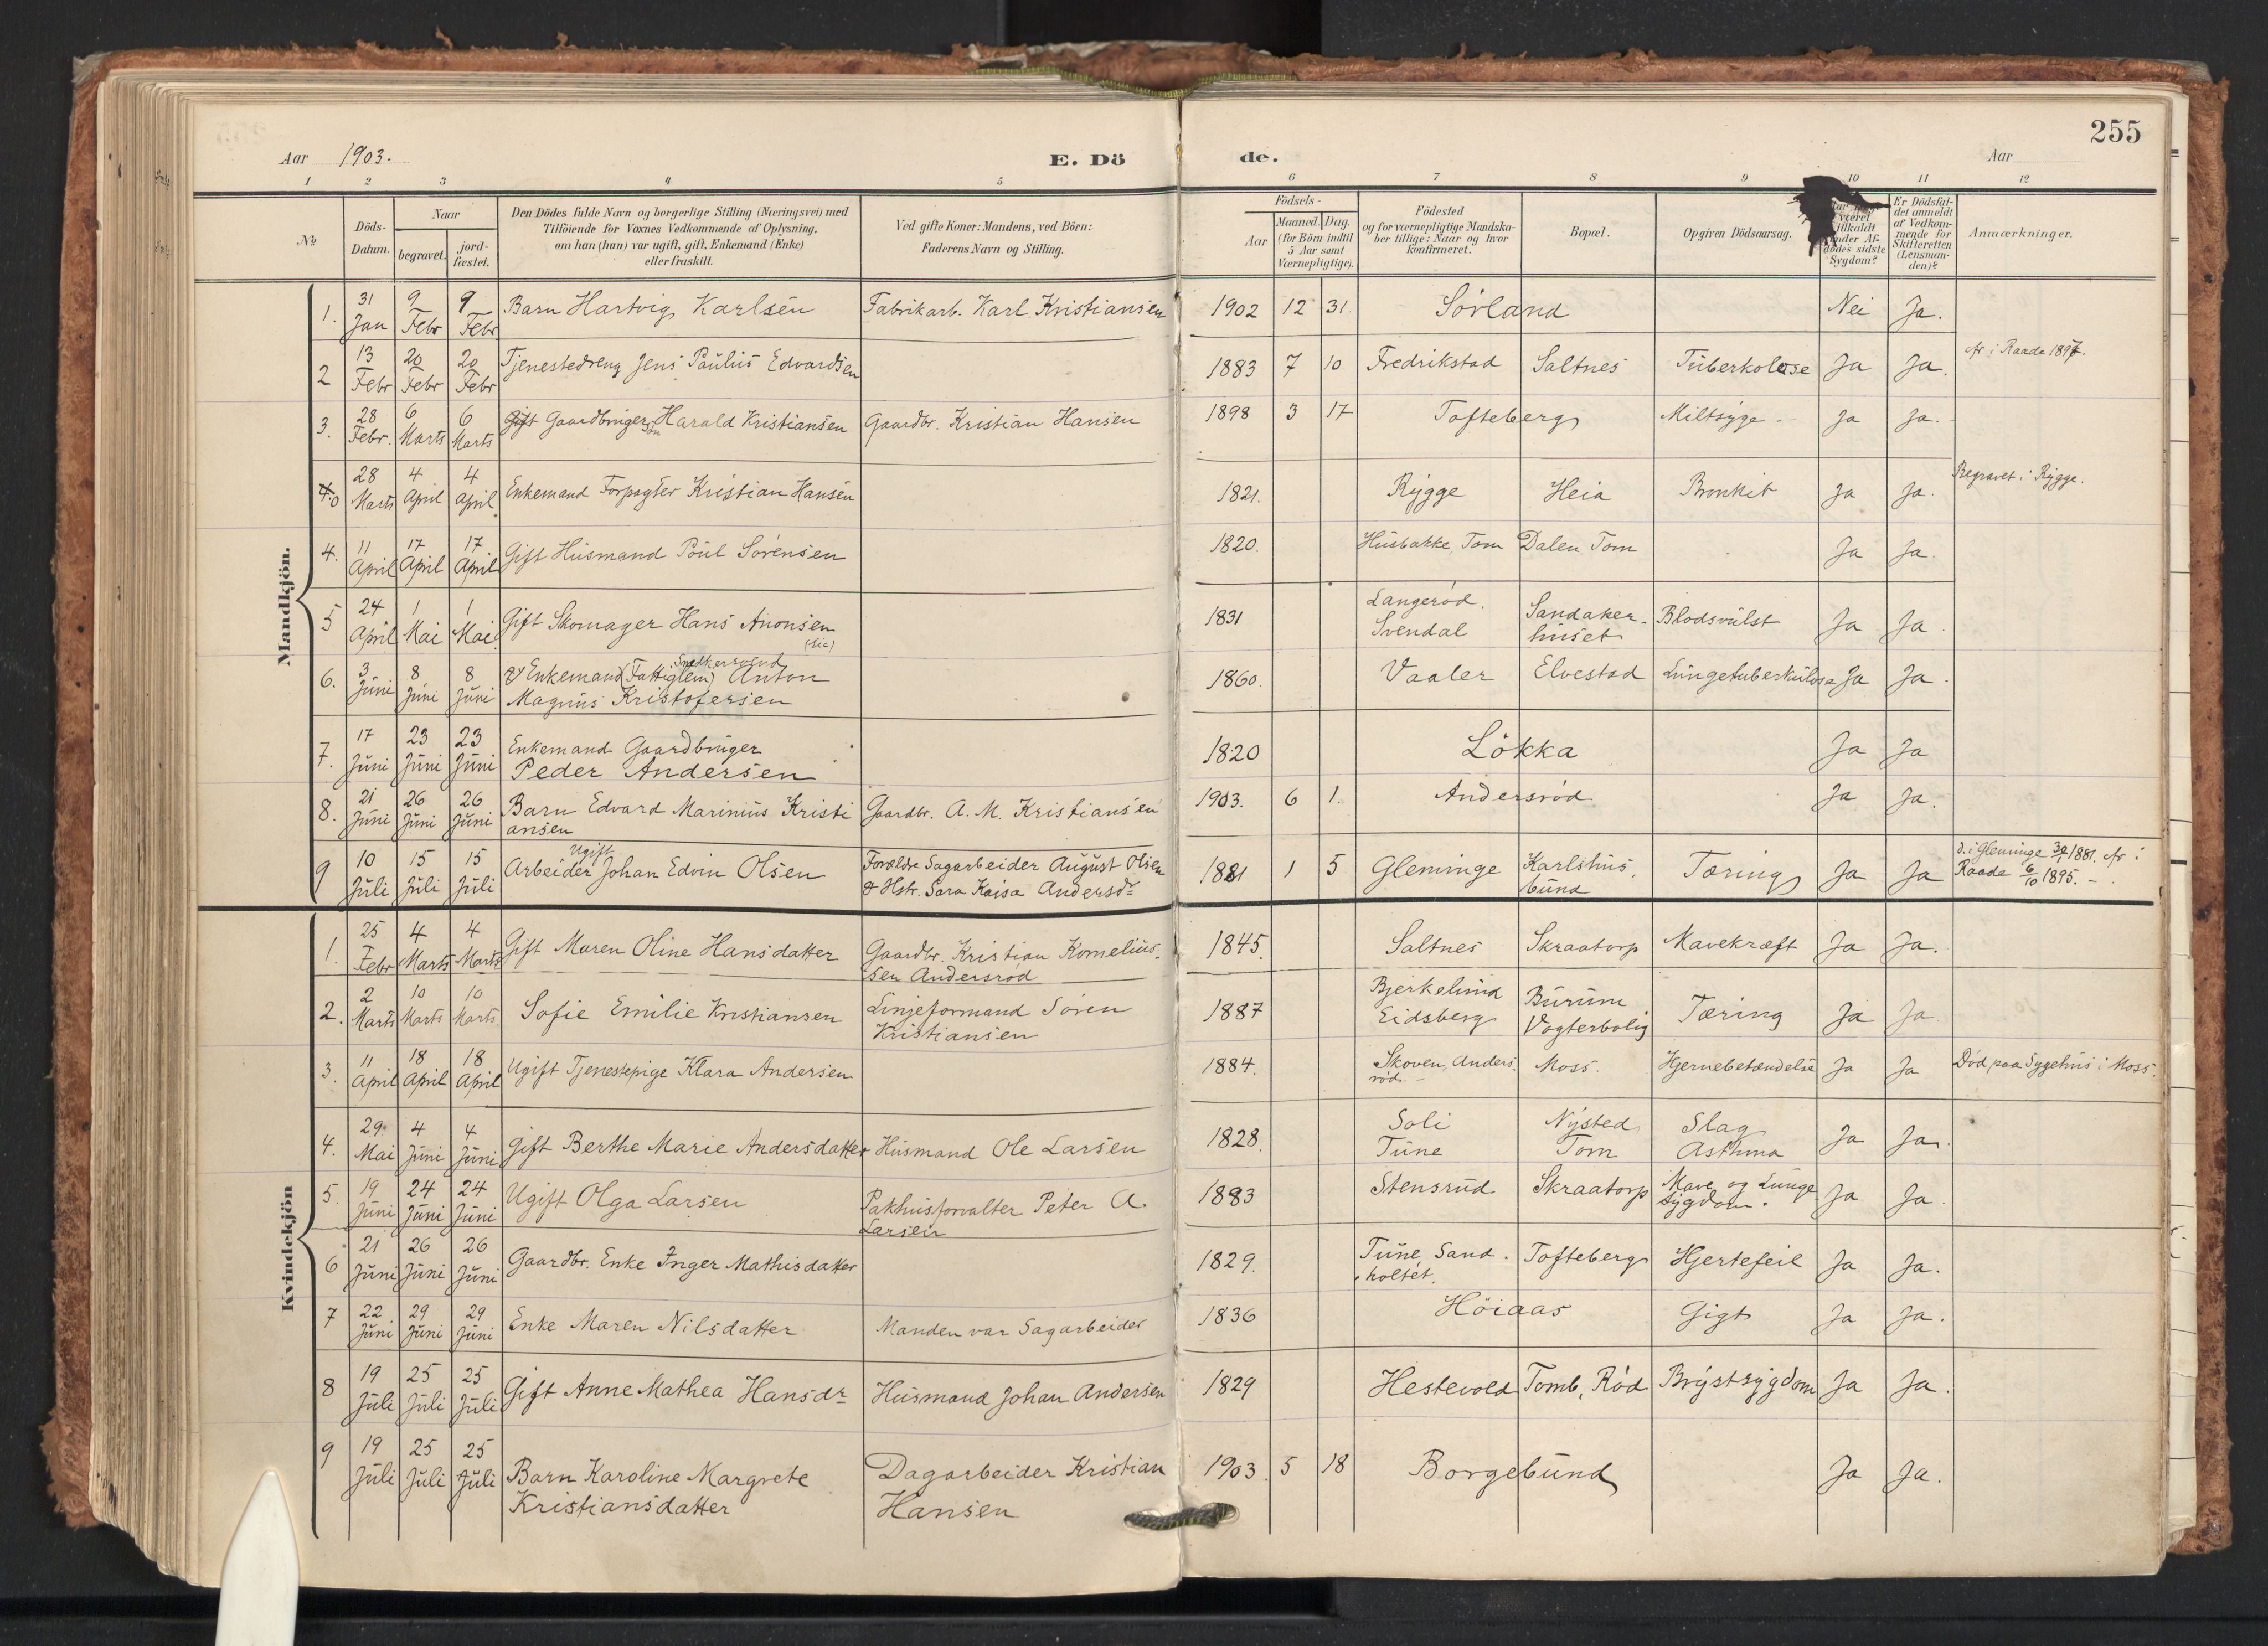 255
Aar 1903. E. Dö de. Aar
1 2 3 4 5 6 7 8 9 10 11 12
No.
Döds-
Datum.
Naar
begravet.
jord-
fæstet.
Den Dödes fulde Navn og borgerlige Stilling (Næringsvei) med
Tilföiende for Voxnes Vedkommende af Oplysning,
om han (hun) var ugift, gift, Enkemand (Enke)
eller fraskilt.
Ved gifte Koner: Mandens, ved Börn:
Faderens Navn og Stilling.
Födsels-
Aar
Maaned. Dag.
(for Börn indtil
5 Aar samt
Værnepligtige).
Födested
og for værnepligtige Mandska-
ber tillige: Naar og hvor
konfirmeret.
Bopæl.
Opgiven Dödsaarsag.
været
tilkaldt
under Af-
dödes sidste
Sygdom?
Er Dödsfal-
det anmeldt
af Vedkom-
mende for
Skifteretten
(Lensman-
den)?
Anmærkninger.
Mandkjön.
1. 31 Jan 9 Febr 9 Febr Barn Hartvig Karlsen Fabrikarb. Karl Kristiansen 1902 12 31 Sörland Nei Ja.
2 13 Febr 20 Febr 20 Febr Tjenestedreng Jens Paulus Edvardsen 1883 7 10 Fredrikstad Saltnes Tuberkolose Ja Ja. i Raade 1897.
3. 28 Febr. 6 Marts 6 Marts Gift Gaardbrugersön Harald Kristiansen Gaardbr. Kristian Hansen 1898 3 17 Tofteberg Miltsyge - Ja Ja.
28 Marts 4 April 4 April Enkemand Forpagter Kristian Hansen 1821. Rygge Heia Bronkit Ja Ja. Begravet i Rygge.
4. 11 April 17 April 17 April Gift Husmand Poul Sörensen 1820. Husbakke, Tom Dalen Tom Ja Ja.
5 24 April 1 Mai 1 Mai. Gift Skomager Hans Anonsen (sic) 1831 Langeröd. Svendal Sandaker-huset Blodsvulst Ja Ja.
6. 3 Juni 8 Juni 8 Juni Enkemand (Fattiglem) Snedkersvend Anton
Magnus Kristofersen 1860. Vaaler Elvestad Lungetuberkulose Ja Ja.
7. 17 Juni 23 Juni 23 Juni Enkemand Gaardbruger
Peder Andersen 1820 Lökka Ja Ja
8. 21 Juni 26 Juni 26 Juni Barn Edvard Marinius Kristi
ansen Gaardbr. A. M. Kristiansen 1903. 6 1. Andersröd Ja Ja.
9 10 Juli 15 Juli 15 Juli Ugift
Arbeider Johan Edvin Olsen Forældre Sagarbeider August Olsen
& Hstr. Sara Kaisa Andersdr 1881 1 5 Gleminge Karlshus.
bund Tæring Ja Ja d. i Gleminge 30/1 1881. i
Raade 6/10 1895. -
Kvindekjön
1. 25 Febr 4 Marts 4 Marts Gift Maren Oline Hansdatter Gaardbr. Kristian Kornelius-
sen Andersröd 1845. Saltnes Skraatorp Mavekræft Ja Ja.
2. 2 Marts 10 Marts 10 Marts Sofie Emilie Kristiansen Linjeformand Sören
Kristiansen 1887 Bjerkelund
Eidsberg Burum
Vogterbolig Tæring Ja Ja
3. 11 April 18 April 18 April Ugift Tjenestepige Klara Andersen 1884. Skoven, Anders.
röd. - Moss. Hjernebetændelse Ja Ja Död paa Sygehus i Moss.
4. 29 Mai 4 Juni 4 Juni Gift Berthe Marie Andersdatter Husmand Ole Larsen 1828. Soli
Tune Nysted
Tom Slag
Asthma Ja Ja.
5. 19 Juni 24 Juni 24 Juni Ugift Olga Larsen Pakhusforvalter Peter A.
Larsen 1883 Stensrud Skraatorp Mave og Lunge
sygdom. Ja Ja.
6 21 Juni 26 Juni 26 Juni Gaardbr. Enke Inger Mathisdatter 1829. Tune, Sand.
holtet. Tofteberg Hjertefeil Ja Ja.
7 22 Juni 29 Juni 29 Juni Enke Maren Nilsdatter Manden var Sagarbeider 1836 Höiaas Gigt Ja Ja.
8 19 Juli 25 Juli 25 Juli Gift Anne Mathea Hansdr Husmand Johan Andersen 1829 Hestevold Tomb, Röd Brystsygdom Ja Ja.
9 19 Juli 25 Juli 25 Juli Barn Karoline Margrete
Kristiansdatter Dagarbeider Kristian
Hansen 1903. 5 18 Borgebund Ja Ja.